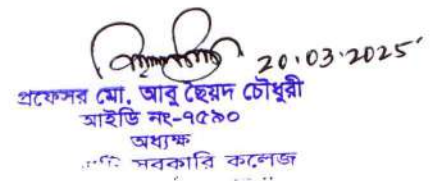 20.03.2025
প্রফেসর মো. আবু ছৈয়দ চৌধুরী
আইডি নং-৭৫৯০
অধ্যক্ষ
সরকারি কলেজ